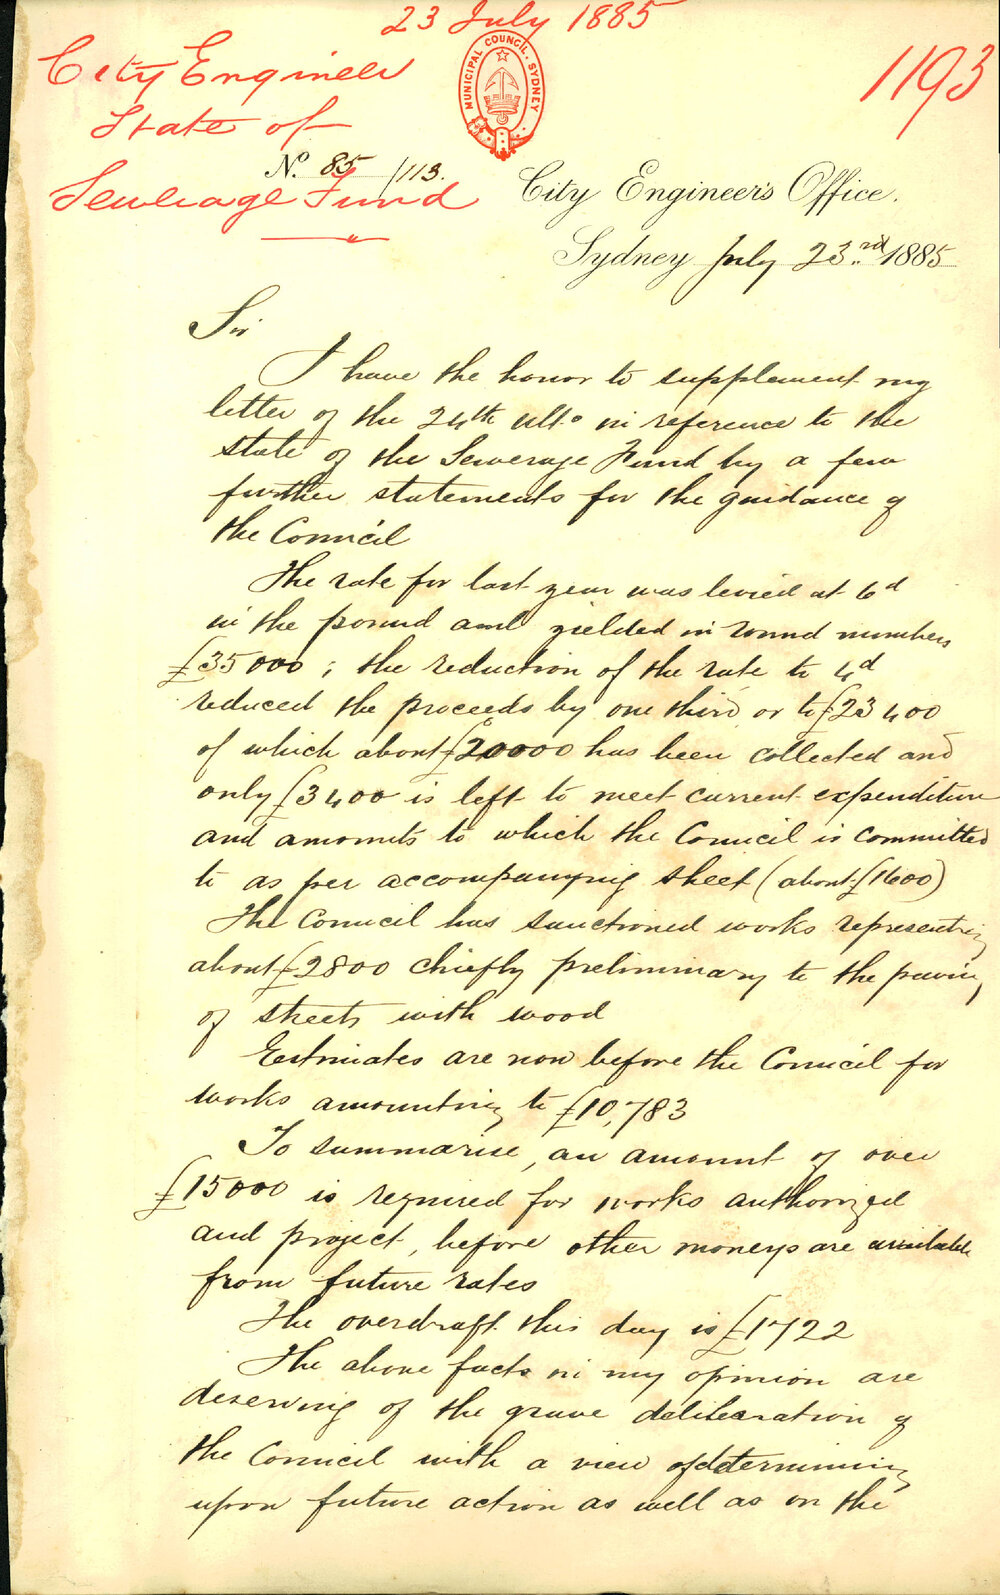 23 July 1885
City Engineer
State of
Sewerage Fund
1193
MUNICIPAL COUNCIL. SYDNEY
No. 85/113.
City Engineer's Office.
Sydney July 23rd 1885
Sir
I have the honor to supplement my
letter of the 24th ulto in reference to the
state of the Sewerage Fund by a few
further statements for the guidance of
the Council
The rate for last year was levied at 6d
in the pound and yielded in round numbers
£35000; the reduction of the rate to 4d
reduced the proceeds by one third or to £23400
of which about £20000 has been collected and
only £3400 is left to meet current expenditure
and amounts to which the Council is committed
to as per accompanying sheet (about £1600)
The Council has sanctioned works representing
about £2800 chiefly preliminary to the paving
of streets with wood
Estimates are now before the Council for
works amounting to £10,783
To summarise, an amount of over
£15000 is required for works authorized
and project, before other moneys are available
from future rates
The overdraft this day is £1722
The above facts in my opinion are
deserving of the grave deliberation of
the Council with a view of determining
upon future action as well as on the